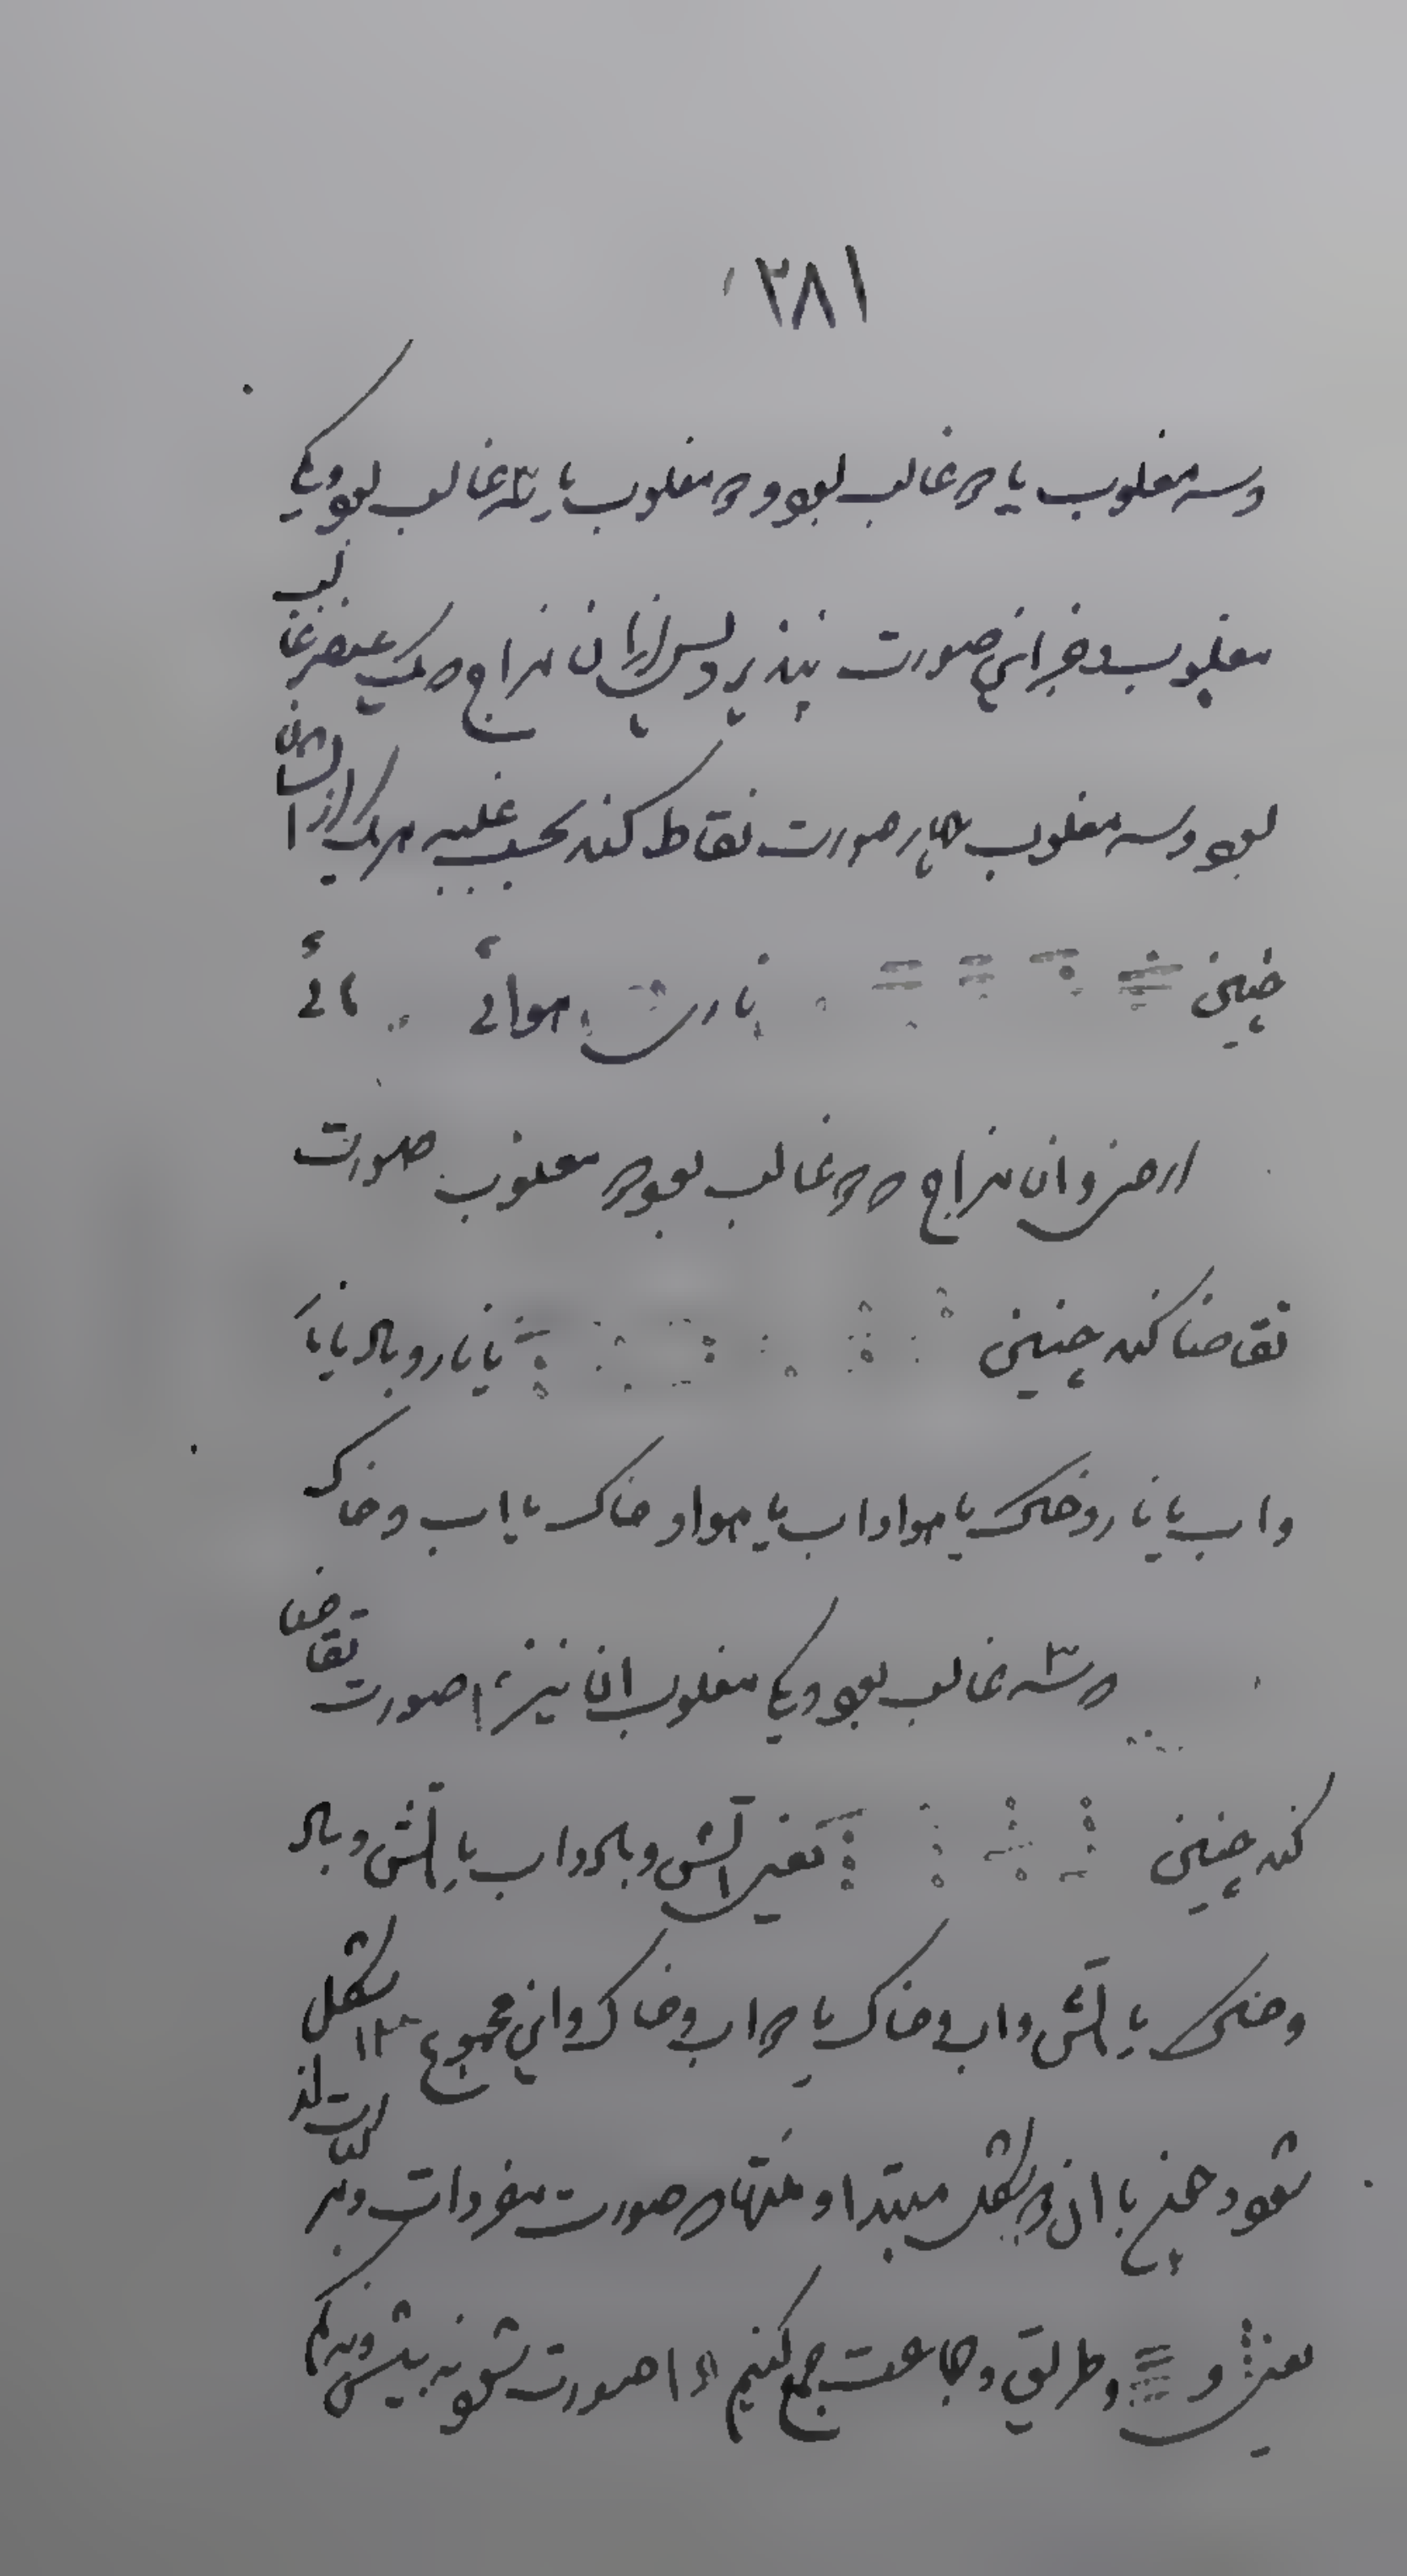 ٢٨١
وسه مغلوب یا دو غالب بود و دو مغلوب یا سه غالب بود و یکی
مغلوب و جز این صورت نپذیرد پس ازان مزاج که یک عنصر غالب
بود و سه مغلوب چهار صورت تقاضا کند بحسب غلبه هر یک از ایشان
چنین ناری هوائی مائی
ارضی و ان مزاج که دو غالب بود دو مغلوب صورت
تقاضا کند چنین یا نار و باد یا نار
و اب یا نار و خاک یا هوا و اب یا هوا و خاک یا اب و خاک
که سه غالب بود و یکی مغلوب ان نیز صورت تقاضا
کند چنین یعنی اتش و باد و اب یا اتش و باد
و خاک یا اتش و اب و خاک یا باد و اب و خاک و این مجموع شکل
شود و چون با ان دو شکل مبتدا و منتها که صورت مفردات و مرکبات اند
یعنی و و طریق و جماعت جمع کنیم صورت شود نه بیش و نه کم